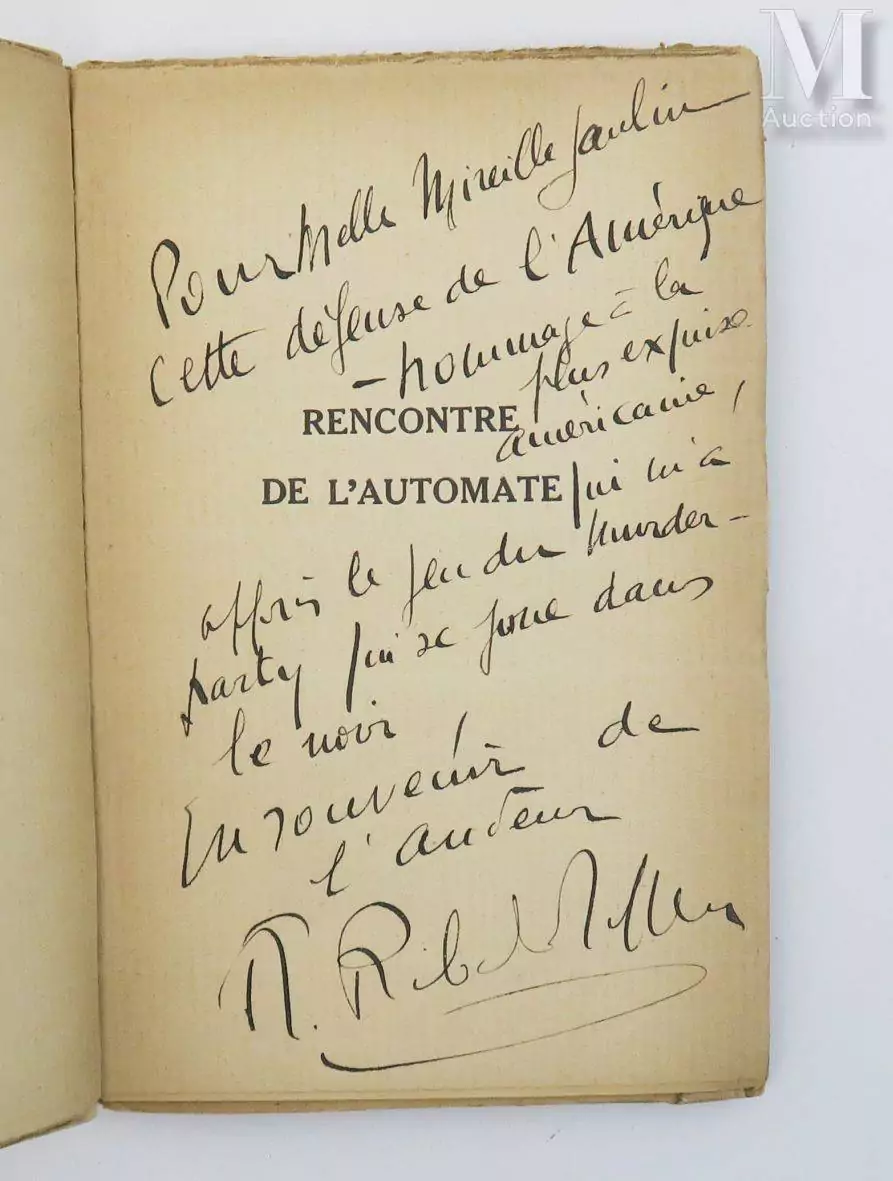 M
Auction
Pour Melle Mireille Jaulin
Cette défense de l'Amérique
- hommage à la
plus exquise
américaine,
RENCONTRE
DE L'AUTOMATE
qui m'a
appris le jeu du Murder-
party qui se joue dans
le noir,
En souvenir de
l'auteur